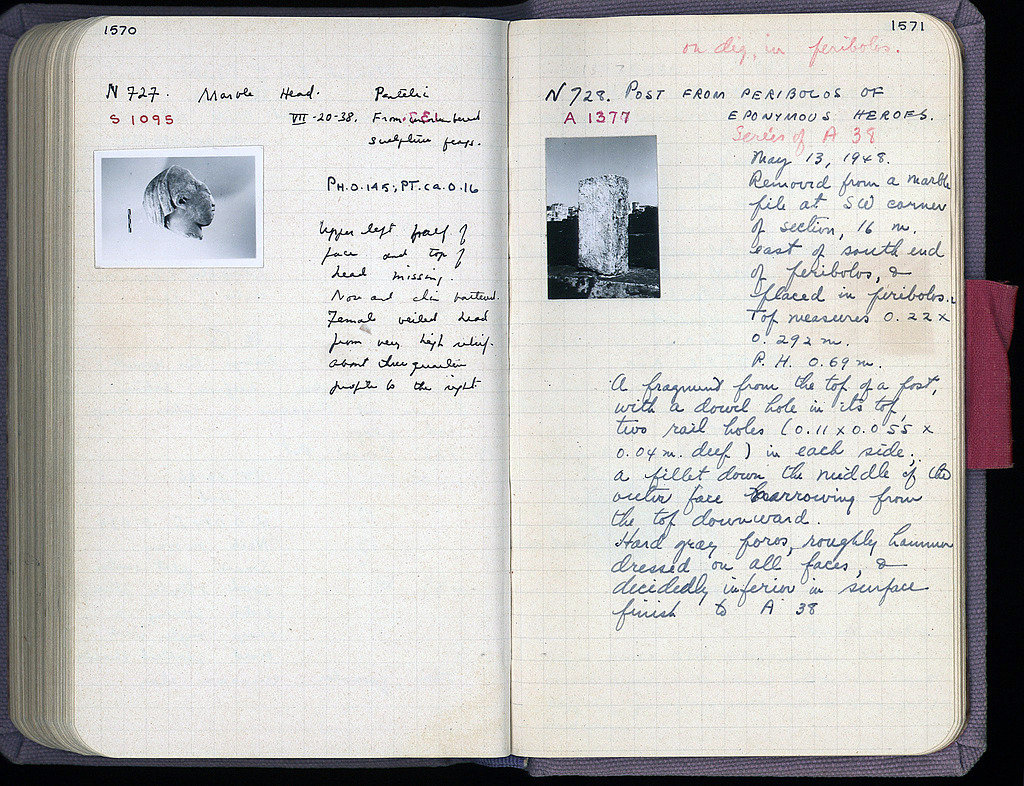 1570
N 727. Marble Head. Pentelic
S 1095 VII-20-38. From
sculpture frags.
PH.0.145; PT.ca.0.16
Upper left half of
face and top of
head missing.
Nose and chin battered.
Female veiled head
from very high relief.
About three quarter
profile to the right
1571
on dig, in peribolos.
N 728. POST FROM PERIBOLOS OF
A 1377 EPONYMOUS HEROES.
Series of A 38
May 13, 1948.
Removed from a marble
pile at SW corner
of section, 16 m.
east of south end
of peribolos, &
placed in peribolos.
Top measures 0.22 x
0.292 m.
P. H. 0.69 m.
A fragment from the top of a post,
with a dowel hole in its top,
two rail holes (0.11 x 0.055 x
0.04 m. deep) in each side,
a fillet down the middle of the
outer face narrowing from
the top downward.
Hard gray poros, roughly hammer
dressed on all faces, &
decidedly inferior in surface
finish to A 38